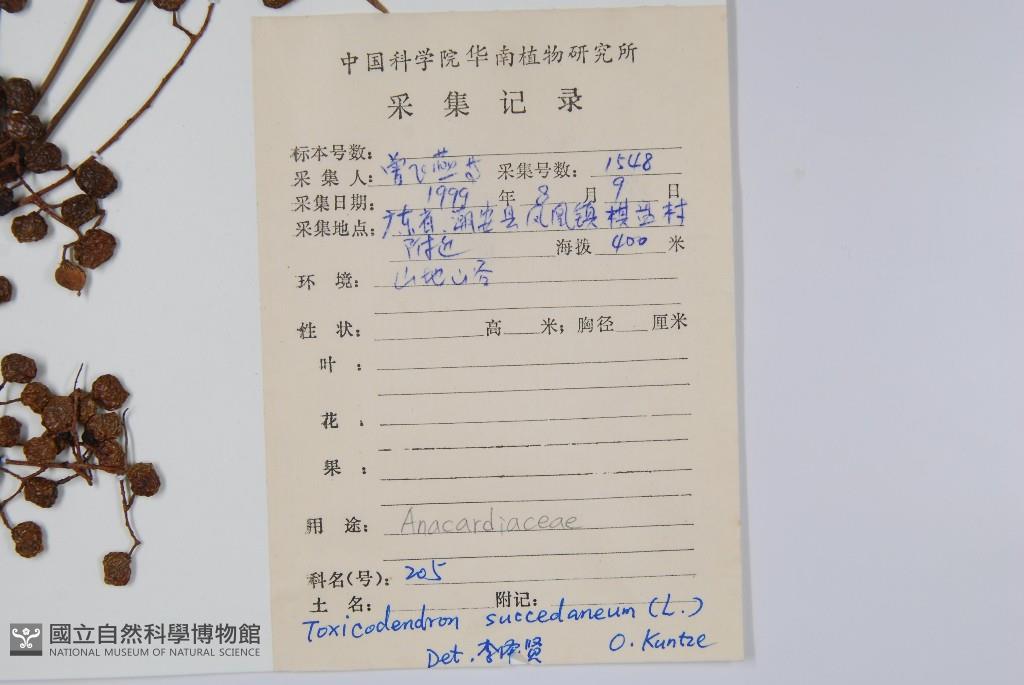 中国科学院华南植物研究所
采集记录
标本号数:
采集人: 曾飞燕等 采集号数: 1548
采集日期: 1999 年 8 月 9 日
采集地点: 广东省潮安县凤凰镇棋盘村
附近 海拨 400 米
环境: 山地山谷
性状: 高 米; 胸径 厘米
叶:
花:
果:
用途: Anacardiaceae
科名(号): 205
土名: 附记:
Toxicodendron succedaneum (L.)
O. Kuntze
Det. 李泽贤
國立自然科學博物館
NATIONAL MUSEUM OF NATURAL SCIENCE